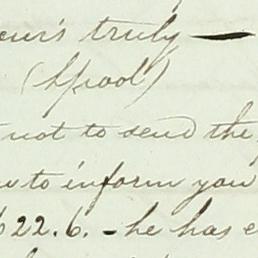 truly —
(Spool)
not to send the
to inform you
22.6. – he has